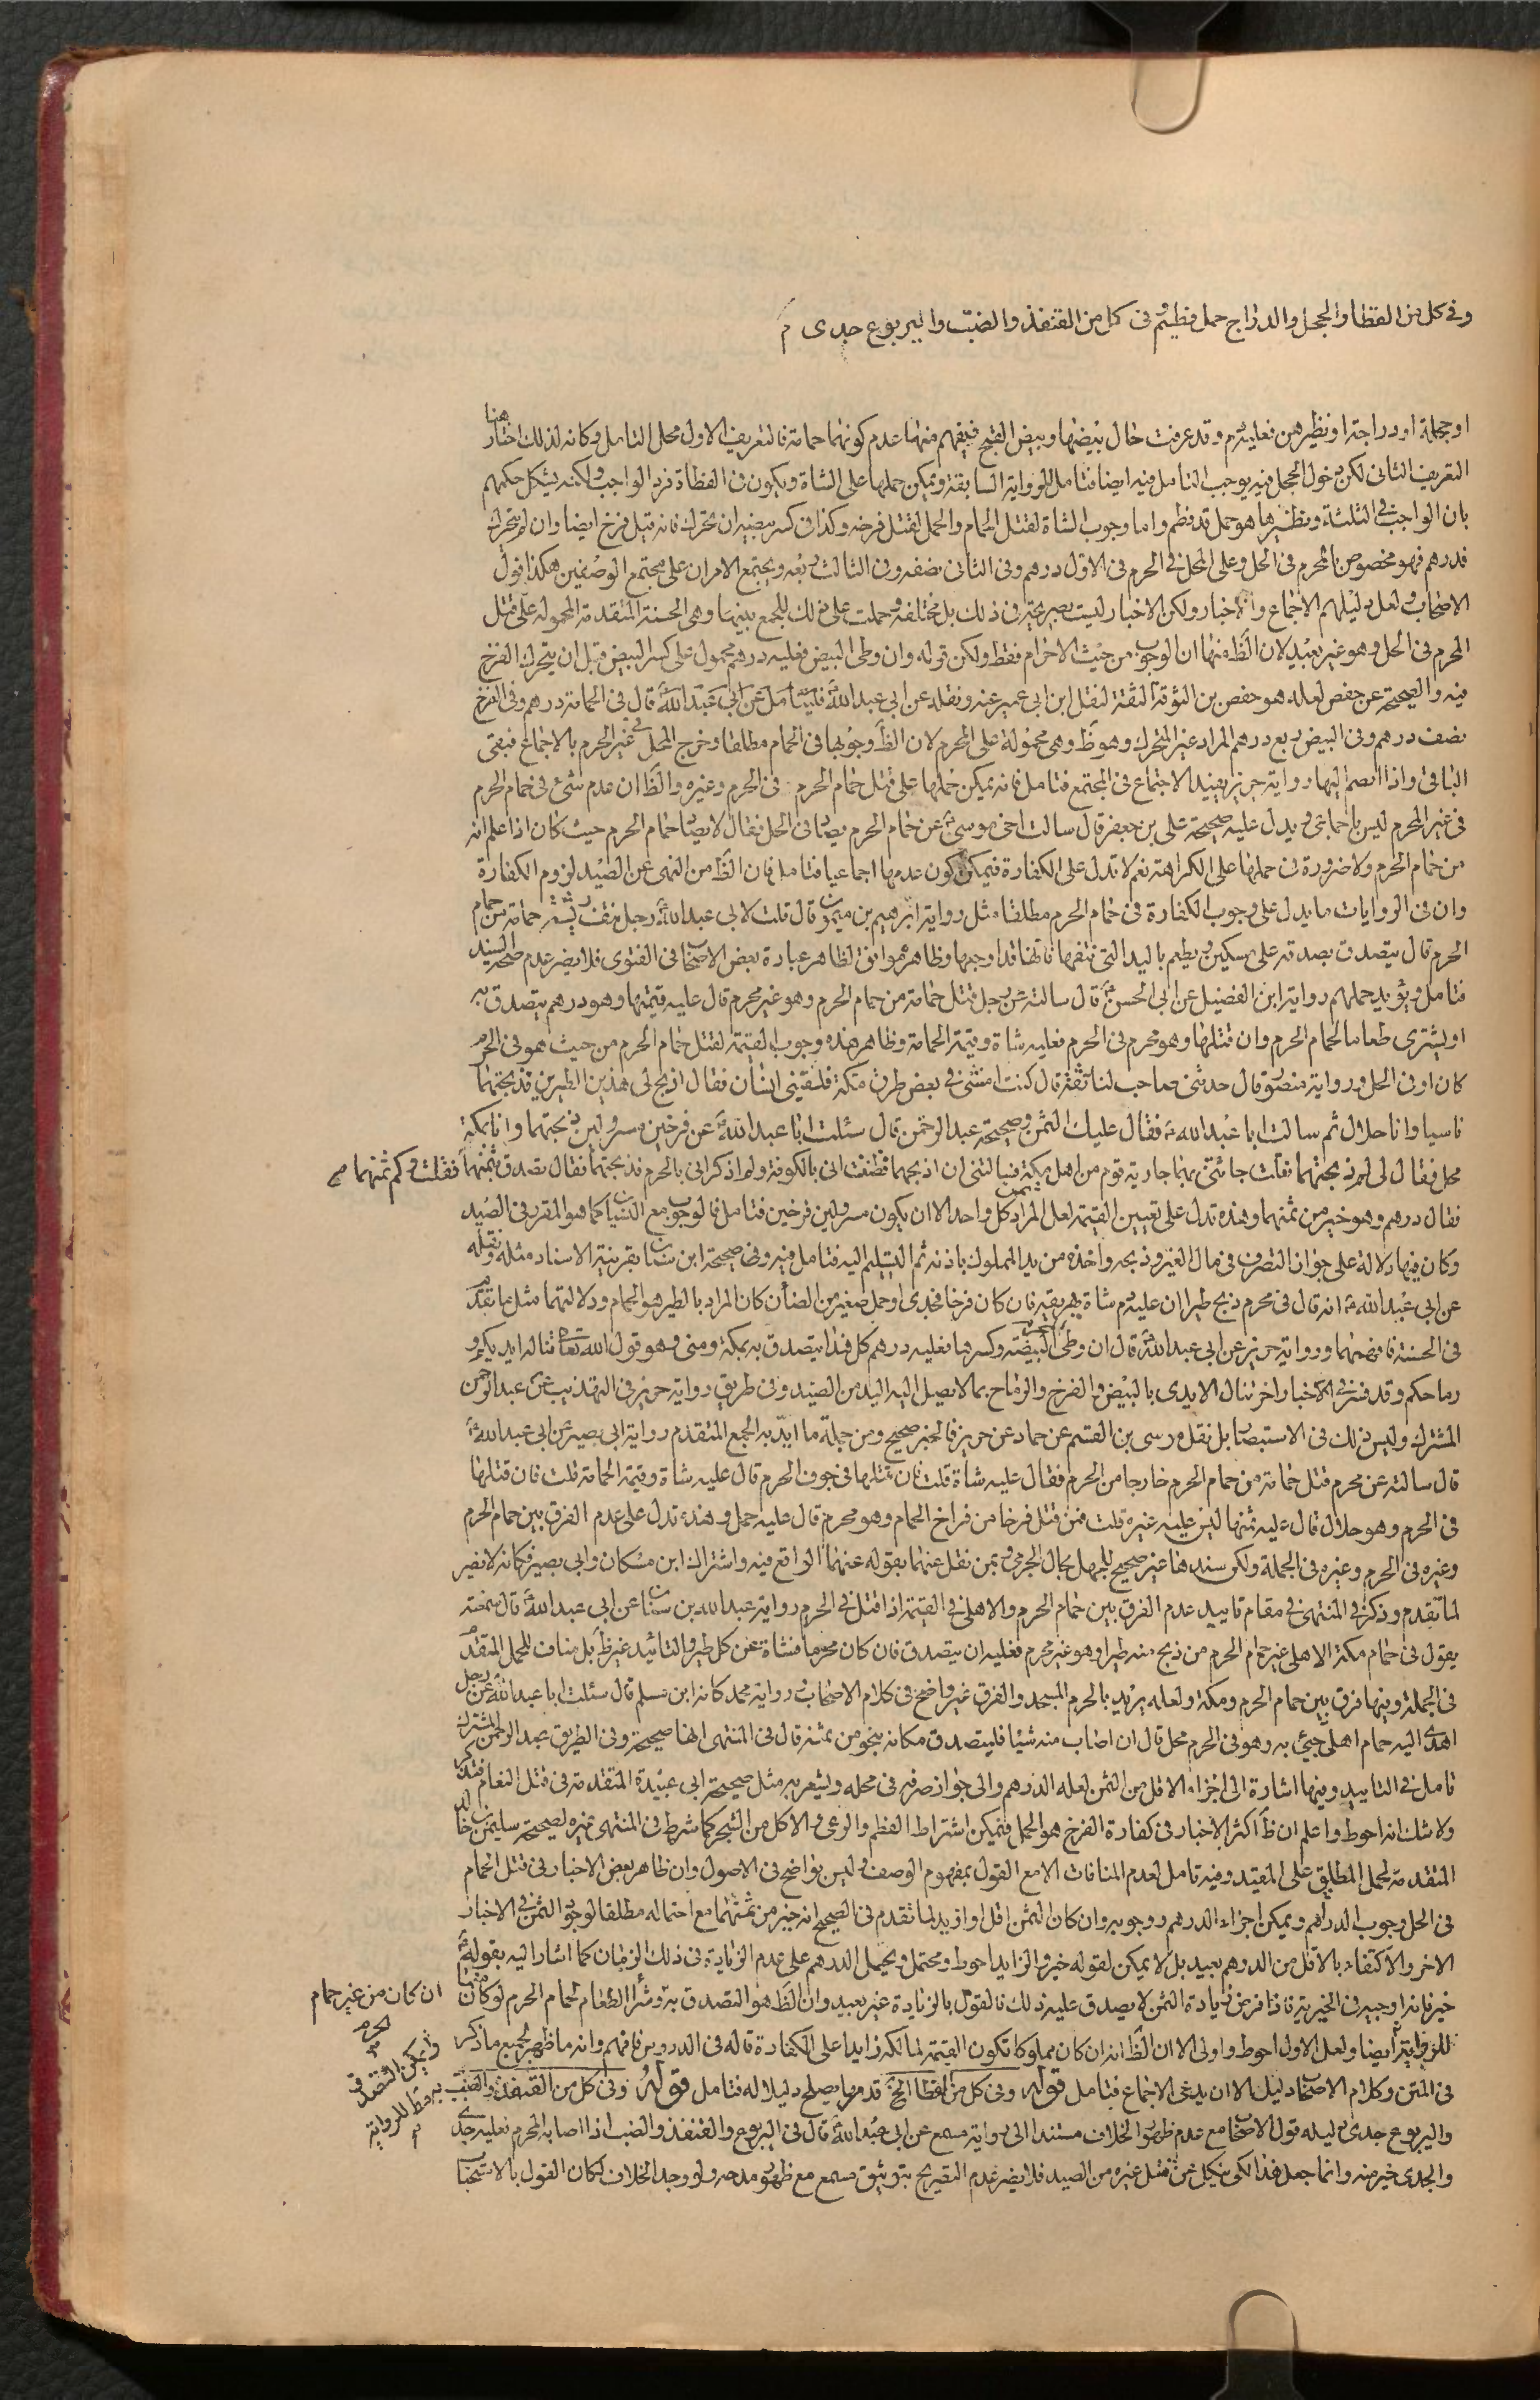 وفي كل من القطا والحجل والدراج حمل فطيم وفي كل من القنفذ والضبّ واليربوع جدى م
او حجلة او دراجة او نظيرهن فعليه دم وقد عرفت حال بيضها وبيض القبج فيفهم منها عدم كونها حمامة فالتعريف الاول محل التامل وكانه لذلك اختار هنا
التعريف الثانى لكن دخول الحجل فيه يوجب التامل فيه ايضا فتامل للرواية السابقة ويمكن حملها على الشاة ويكون في القطاة فرد الواجب ولكنه يشكل حكمهم
بان الواجب في الثلثة ونظيرها هو حمل قد فطم واما وجوب الشاة لقتل الحمام والحمل لقتل فرخه وكذا في كسر بيضه ان تحرك فانه قبل فرخ ايضا وان لم يتحرك
فدرهم فهو مخصوص بالمحرم في الحل وعلى المحل في الحرم في الاول درهم وفي الثانى نصفه وفي الثالث ربعه ويجتمع الامران على مجتمع الوصفين هكذا قول
الاصحاب ولعل دليلهم الاجماع والاخبار ولكن الاخبار ليست بصريحة في ذلك بل مختلفة وحملت على ذلك للجمع بينها وهي الحسنة المتقدمة المحمولة على قتل
المحرم في الحل وهو غير بعيد لان الظ منها ان الوجوب من حيث الاحرام فقط ولكن قوله وان وطى البيض فعليه درهم محمول على كسر البيض قبل ان يتحرك الفرخ
فيه والصحيحة عن حفص لعله هو حفص بن البخترى الثقة لنقل ابن ابي عمير عنه ونقله عن ابي عبد الله فليتامل عن ابي عبد الله قال في الحمامة درهم وفي الفرخ
نصف درهم وفي البيض ربع درهم المراد غير المتحرك وهو ظ وهي محمولة على المحرم لان الظ وجوبها في الحمام مطلقا وخرج المحل في غير الحرم بالاجماع فبقى
الباقي واذا انضم اليها رواية حريز يفيد الاجتماع في المجتمع فتامل فانه يمكن حملها على قتل حمام الحرم في الحرم وغيره والظ ان عدم شئ في حمام الحرم
في غير الحرم ليس باجماعي ويدل عليه صحيحة على بن جعفر قال سالت اخى موسى عن حمام الحرم يصاد في الحل فقال لا يصاد حمام الحرم حيث كان اذا علم انه
من حمام الحرم ولا ضرورة في حملها على الكراهة نعم لا تدل على الكفارة فيمكن كون عدمها اجماعيا فتامل فان الظ من النهى عن الصيد لزوم الكفارة
وان في الروايات ما يدل على وجوب الكفارة في حمام الحرم مطلقا مثل رواية ابرهيم بن ميمون قال قلت لابي عبد الله رجل نتف ريشة حمامة من حمام
الحرم قال يتصدق بصدقة على مسكين ويطعم باليد التي نتفها فانها قد اوجعها وظاهرها موافق لظاهر عبارة بعض الاصحاب في الفتوى فلا يضر عدم صحة السند
فتامل ويؤيد حملهم رواية ابن الفضيل عن ابي الحسن قال سالته عن رجل قتل حمامة من حمام الحرم وهو غير محرم قال عليه قيمتها وهو درهم يتصدق به
او يشترى طعاما لحمام الحرم وان قتلها وهو محرم في الحرم فعليه شاة وقيمة الحمامة وظاهر هذه وجوب القيمة لقتل حمام الحرم من حيث هو في الحرم
كان او في الحل ورواية منصور قال حدثني صاحب لنا ثقة قال كنت امشى في بعض طرق مكة فلقيني انسان فقال اذبح لي هذين الطيرين فذبحتهما
ناسيا وانا حلال ثم سالت ابا عبد الله فقال عليك الثمن وصحيحة عبد الرحمن قال سئلت ابا عبد الله عن فرخين مسرولين ذبحتهما وانا بمكة
محل فقال لي لم ذبحتهما فقلت جائتني بهما جارية قوم من اهل مكة فسالتني ان اذبحهما فظننت انى بالكوفة ولم اذكر انى بالحرم فذبحتهما فقال تصدق بثمنهما فقلت وكم ثمنهما
فقال درهم وهو خير من ثمنهما وهذه تدل على تعيين القيمة لعل المراد ثمن كل واحد الا ان يكون مسرولين فرخين فتامل فالوجوب مع النسيان كما هو المقرر في الصيد
وكان فيها دلالة على جواز التصرف في مال الغير وذبحه واخذه من يد المملوك باذنه ثم التسليم اليه فتامل فيه وفي صحيحة ابن سنان بقرينة الاسناد مثله ونقله
عن ابي عبد الله انه قال في محرم ذبح طيرا ان عليه دم شاة يهريقه فان كان فرخا فجدى او حمل صغير من الضأن كان المراد بالطير هو الحمام ودلالتها مثل ما تقدم
في الحسنة فافهمها ورواية حريز عن ابي عبد الله قال ان وطئ المحرم البيضة وكسرها فعليه درهم كل هذا يتصدق به بمكة ومنى وهو قول الله تعا تناله ايديكم و
رماحكم وقد فسر في الاخبار اخر تنال الايدى بالبيض والفرخ والرماح بما لا يصل اليه اليد من الصيد وفي طريق رواية حريز في التهذيب عن عبد الرحمن
المشترك وليس ذلك في الاستبصار بل نقله موسى بن القسم عن حماد عن حريز فالخبر صحيح ومن جملة ما ايد به الجمع المتقدم رواية ابي بصير عن ابي عبد الله
قال سالته عن محرم قتل حمامة من حمام الحرم خارجا من الحرم فقال عليه شاة قلت فان قتلها في جوف الحرم قال عليه شاة وقيمة الحمامة قلت فان قتلها
في الحرم وهو حلال قال عليه ثمنها ليس عليه غيره قلت فمن قتل فرخا من فراخ الحمام وهو محرم قال عليه حمل وهذه تدل على عدم الفرق بين حمام الحرم
وغيره في الحرم وغيره في الجملة ولكن سندها غير صحيح للجهل بحال الجرمى وبمن نقل عنهما بقوله عنهما الواقع فيه واشتراك ابن مسكان وابي بصير فكانه لا يضر
لما تقدم وذكر في المنتهى في مقام تاييد عدم الفرق بين حمام الحرم والاهلى في القيمة اذا قتل في الحرم رواية عبد الله بن سنان عن ابي عبد الله قال سمعته
يقول في حمام مكة الاهلى غير حمام الحرم من ذبح منه طيرا وهو غير محرم فعليه ان يتصدق فان كان محرما فشاة عن كل طير والتائيد غير ظ بل مناف للحمل المتقدم
في الجملة وفيها فرق بين حمام الحرم ومكة ولعله يريد بالحرم المسجد والفرق غير واضح في كلام الاصحاب ورواية محمد كانه ابن مسلم قال سئلت ابا عبد الله عن رجل
اهدى اليه حمام اهلى جئ به وهو في الحرم محل قال ان اصاب منه شيئا فليتصدق مكانه بنحو من ثمنه قال في المنتهى انها صحيحة وفي الطريق عبد الرحمن المشترك
تامل في التاييد وفيها اشارة الى اجزاء الاقل من الثمن لعله الدرهم والى جواز صرفه في محله ويشعر به مثل صحيحة ابي عبيدة المتقدمة في قتل النعام فتذكر
ولا شك انه احوط واعلم ان ظ اكثر الاخبار في كفارة الفرخ هو الحمل فيمكن اشتراط الفطم والرعى والاكل من الشجر كما شرط في المنتهى غيره لصحيحة سليمن بن خالد
المتقدمة لحمل المطلق على المقيد وفيه تامل لعدم المنافات الا مع القول بمفهوم الوصف وليس بواضح في الاصول وان ظاهر بعض الاخبار في قتل الحمام
في الحل وجوب الدرهم ويمكن اجزاء الدرهم ووجوبه وان كان الثمن اقل او ازيد لما تقدم في الصحيح انه خير من ثمنهما مع احتماله مطلقا لوجود الثمن في الاخبار
الاخر والاكتفاء بالاقل من الدرهم بعيد بل لا يمكن لقوله خير والزايد احوط ومحتمل ويحمل الدرهم على عدم الزيادة في ذلك الزمان كما اشار اليه بقوله
خير فانه اوجبه في الخيرية فاذا فرض زيادة الثمن لا يصدق عليه ذلك فالقول بالزيادة غير بعيد وان الظ هو التصدق به وشراء الطعام لحمام الحرم لو كان منها ان كان من غير حمام
الحرم
ويمكن التصدق به
للرواية ايضا ولعل الاول احوط واولى الا ان الظ انه ان كان مملوكا تكون القيمة لمالكه زايدا على الكفارة قاله في الدروس فافهم وانه ما ظهر لجميع ما ذكر
في المتن وكلام الاصحاب دليل الا ان يدعى الاجماع فتامل قوله وفي كل من القطا الخ قد مر ما يصلح دليلا له فتامل قوله وفي كل من القنفذ والضب
واليربوع جدى دليله قول الاصحاب مع عدم ظهور الخلاف مستندا الى رواية مسمع عن ابي عبد الله قال في اليربوع والقنفذ والضب اذا اصابه المحرم فعليه جدى
والجدى خير منه وانما جعل هذا لكى ينكل عن قتل غيره من الصيد فلا يضر عدم التصريح بتوثيق مسمع مع ظهور مدحه ولو وجد الخلاف لكان القول بالاستحباب